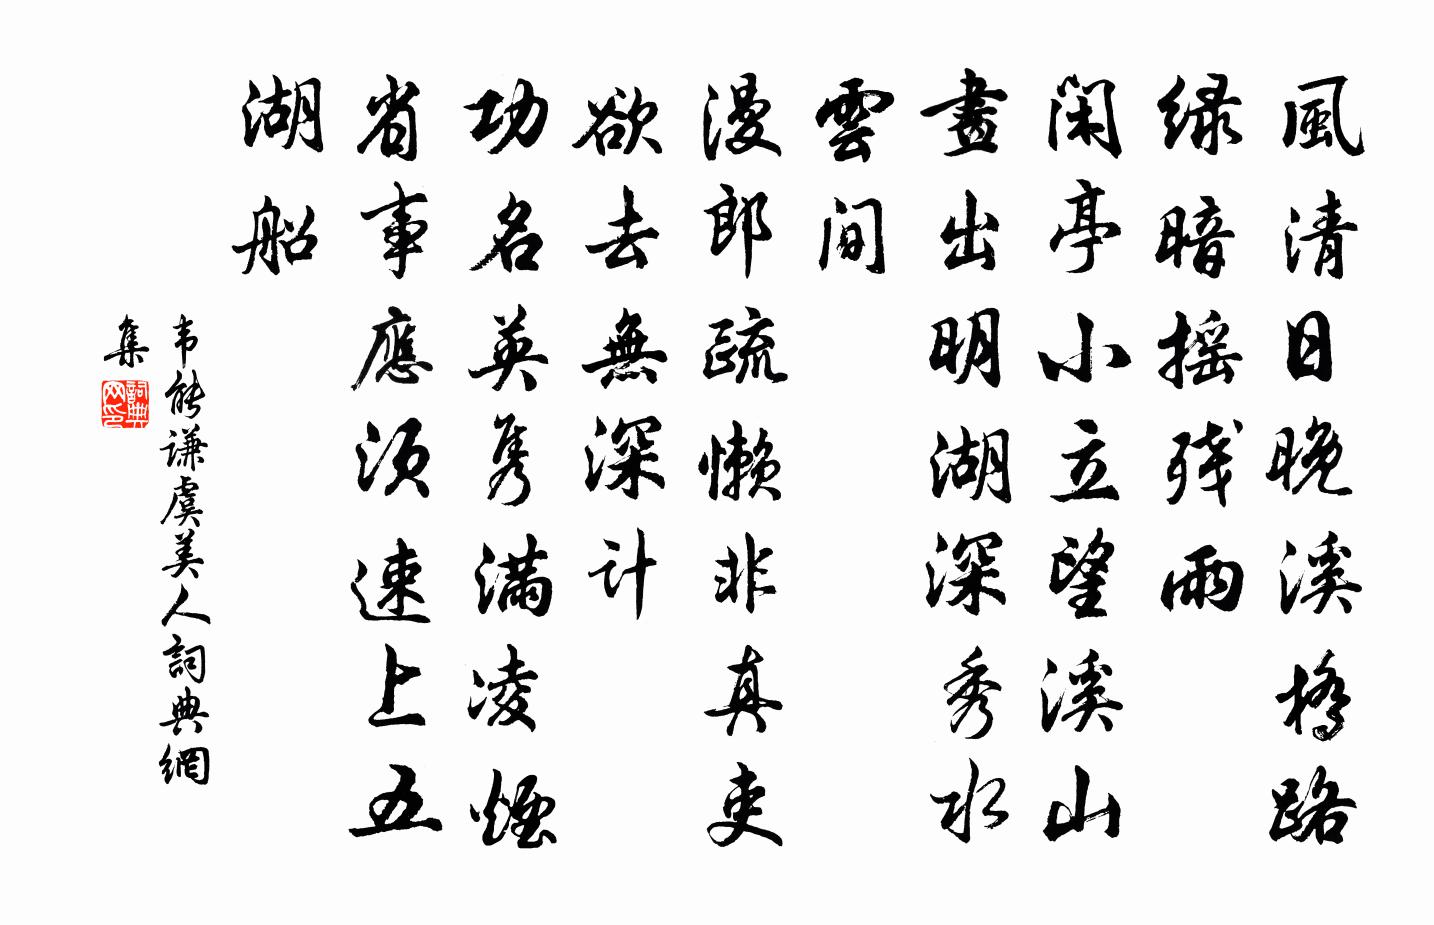 風清日晚溪橋路
緑暗摇残雨
闲亭小立望溪山
畫出明湖深秀水
雲间
漫郎疏懒非真吏
欲去無深计
功名英隽满凌煙
省事應须速上五
湖船
韦能谦虞美人詞典網
集
詞典网印